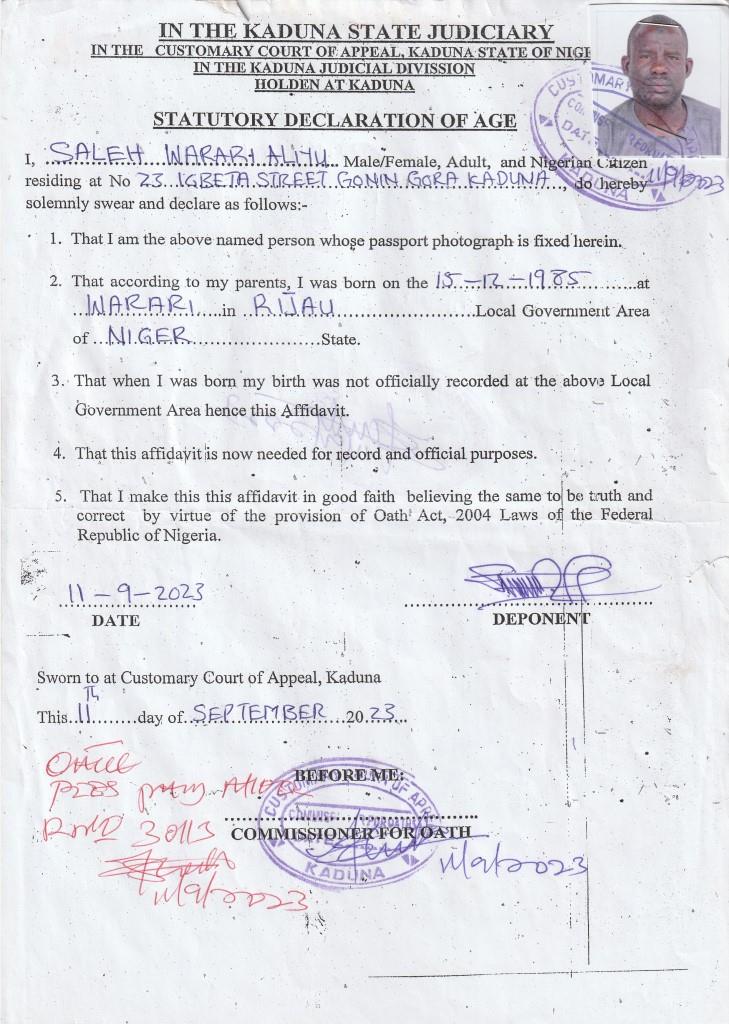 IN THE KADUNA STATE JUDICIARY
IN THE CUSTOMARY COURT OF APPEAL, KADUNA STATE OF NIGE
IN THE KADUNA JUDICIAL DIVISION
HOLDEN AT KADUNA
STATUTORY DECLARATION OF AGE
I, SALEH WARARI ALIYU Male/Female, Adult, and Nigerian Citizen
residing at No 23 IGBETA STREET GONIN GORA KADUNA, do hereby
solemnly swear and declare as follows:-
KADUNA
11/9/2023
1. That I am the above named person whose passport photograph is fixed herein.
2. That according to my parents, I was born on the 15-12-1985 at
WARARI in RIJAU Local Government Area
of NIGER State.
3. That when I was born my birth was not officially recorded at the above Local
Government Area hence this Affidavit.
4. That this affidavit is now needed for record and official purposes.
5. That I make this this affidavit in good faith believing the same to be truth and
correct by virtue of the provision of Oath Act, 2004 Laws of the Federal
Republic of Nigeria.
11-9-2023
DATE
DEPONENT
Sworn to at Customary Court of Appeal, Kaduna
This 11TH day of SEPTEMBER 2023
BEFORE ME:
COMMISSIONER FOR OATH
KADUNA
11/9/2023
11/9/2023